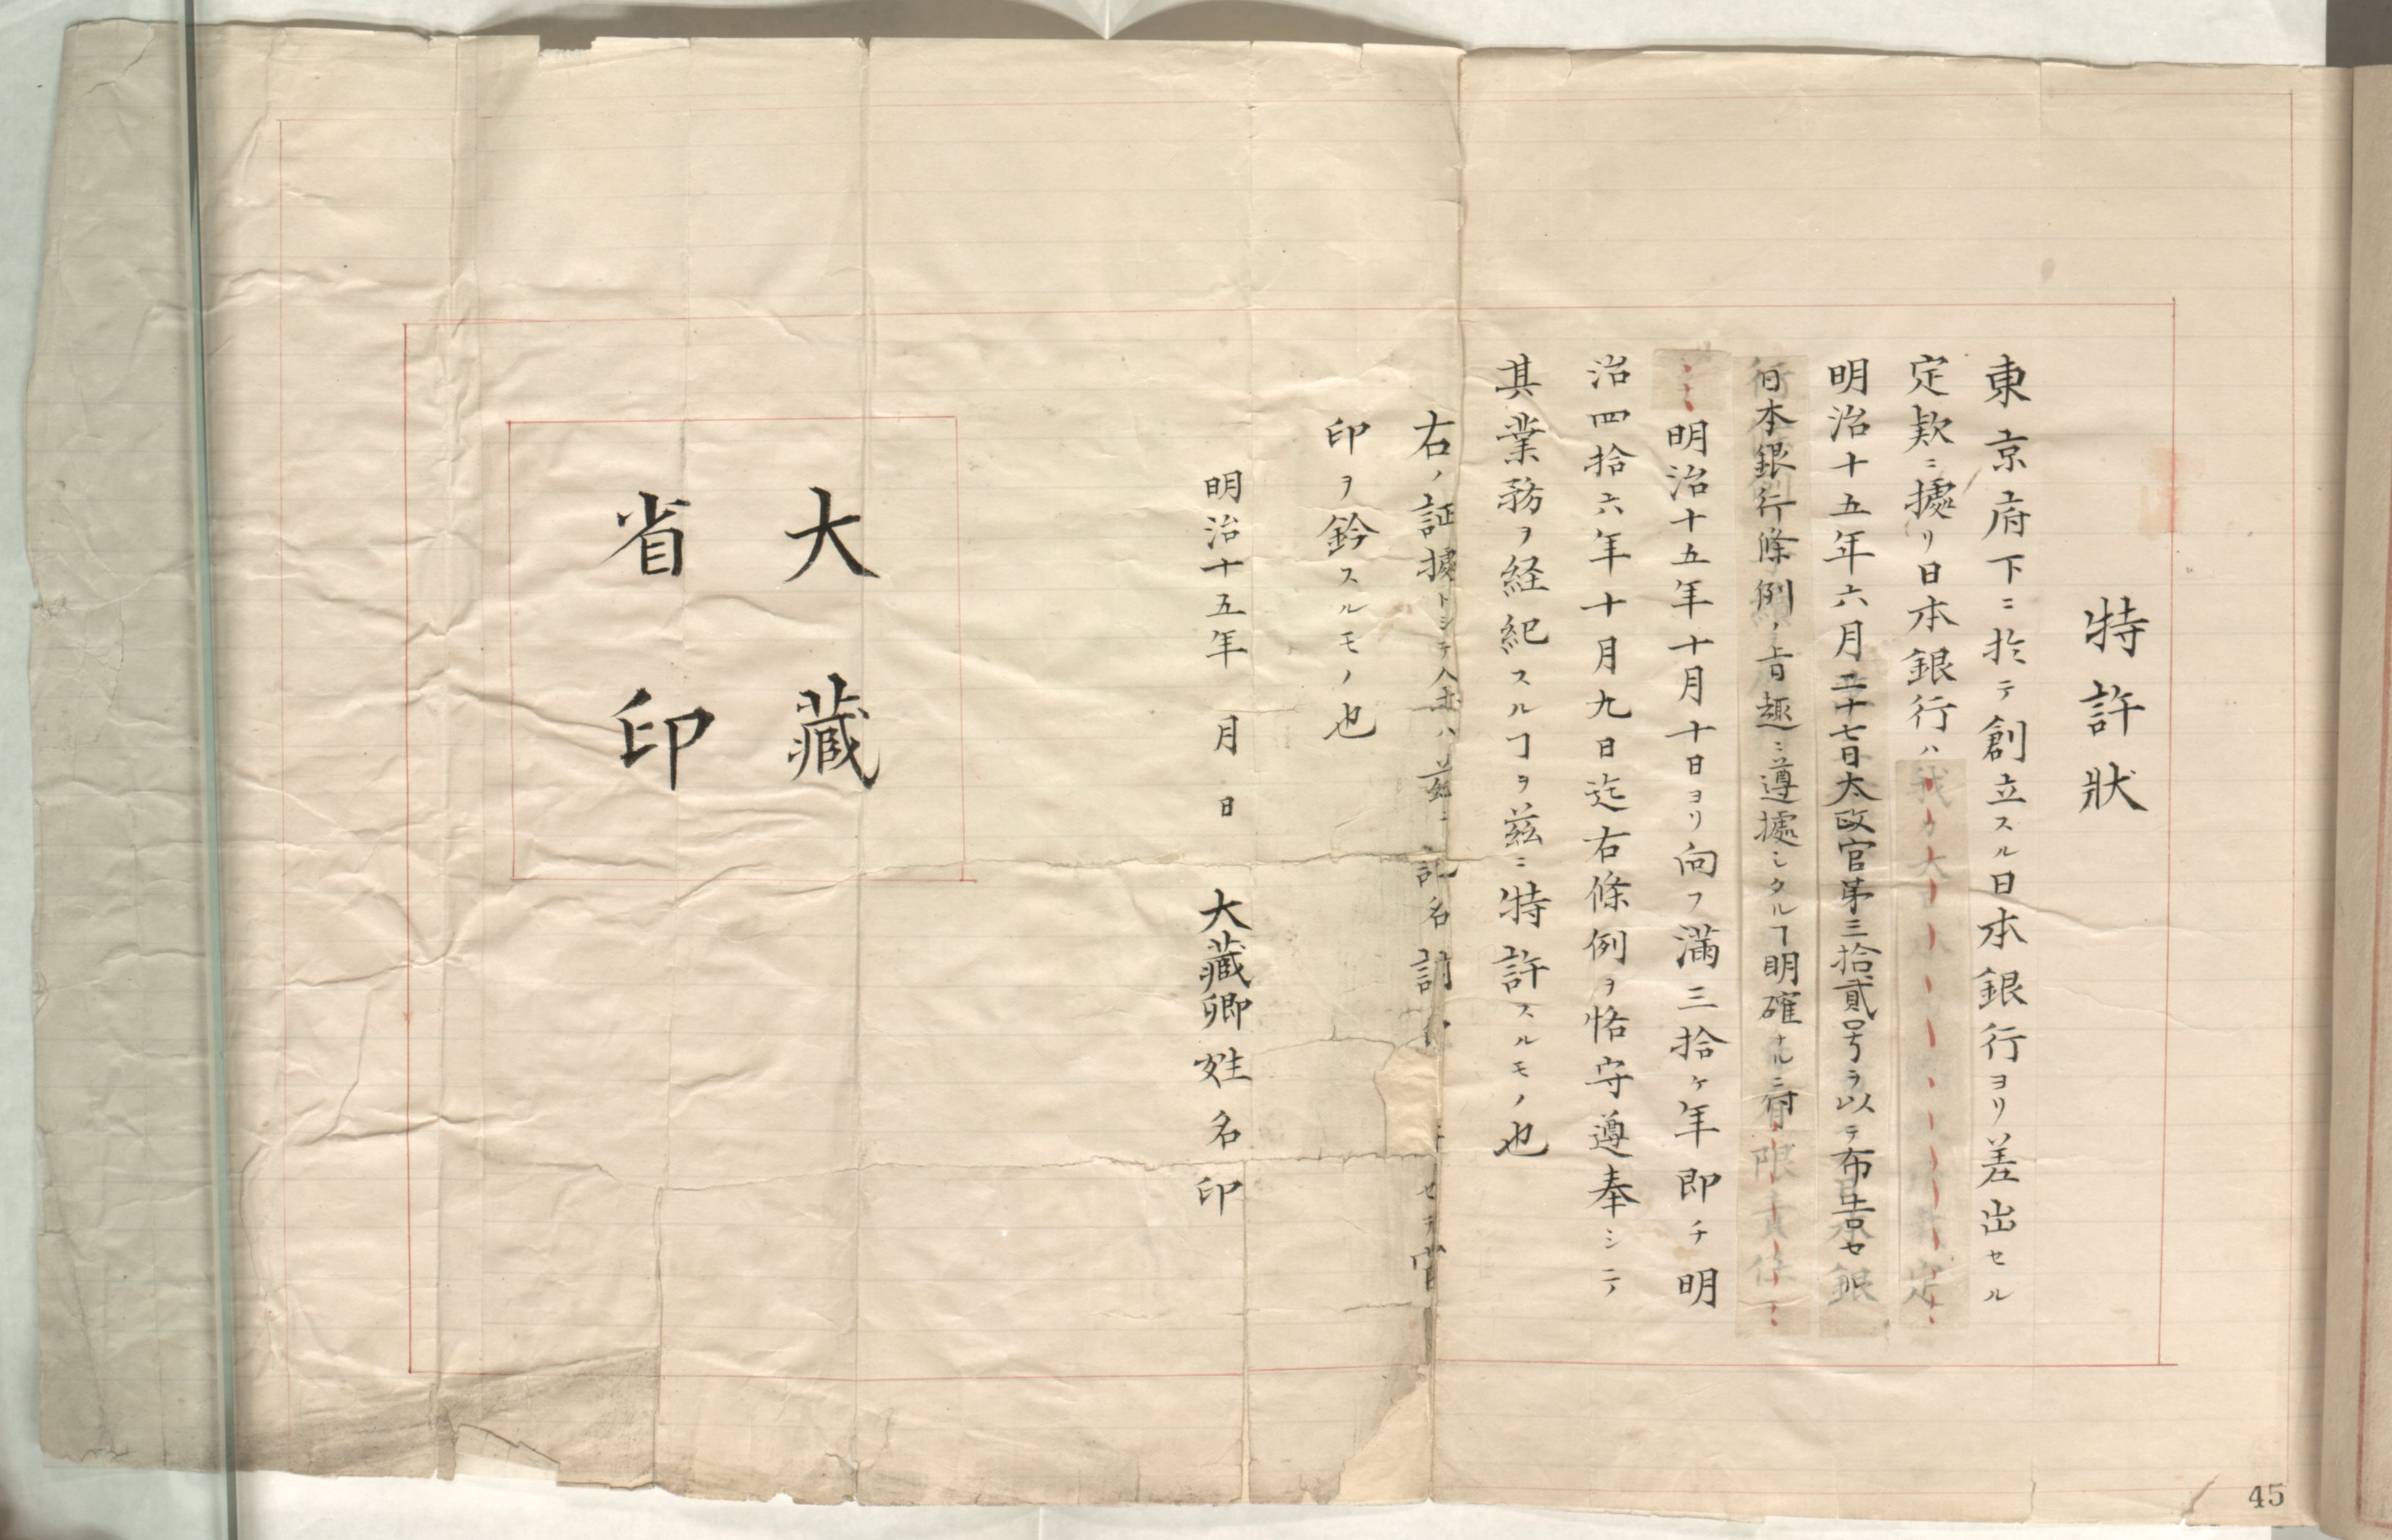 特許狀
東京府下ニ於テ創立スル日本銀行ヨリ差出セル
定款ニ據リ日本銀行ハ
明治十五年六月二十七日太政官第三拾貳号ヲ以テ布告セ
日本銀行條例ノ旨趣ニ遵據シタルヿ明確ナルニ付
明治十五年十月十日ヨリ向フ滿三拾ヶ年即チ明
治四拾六年十月九日迄右條例ヲ恪守遵奉シテ
其業務ヲ経紀スルヿヲ茲ニ特許スルモノ也
右ノ証據トシテ余ハ茲ニ記名セラ官
印ヲ鈐スルモノ也
明治十五年 月 日 大藏卿姓名印
大藏
省印
45